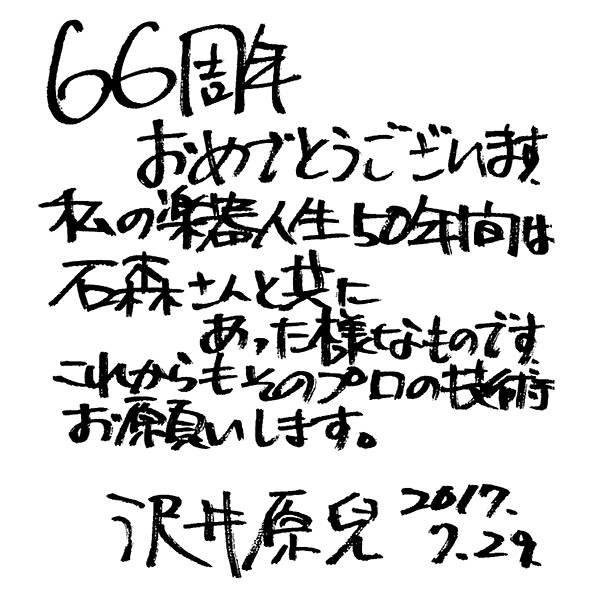 66周年
おめでとうございます、
私の楽器人生50年間は
石森さんと共に
あった様なものです、
これからもそのプロの技術
お願いします。
沢井原兒 2017.
7.29.